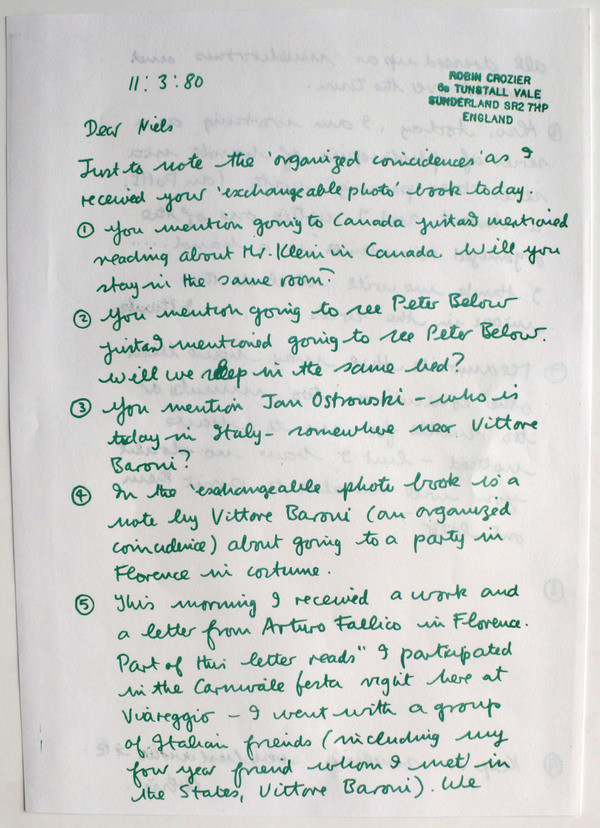 11:3:80
ROBIN CROZIER
6a TUNSTALL VALE
SUNDERLAND SR2 7HP
ENGLAND
Dear Niels
Just to note the 'organized coincidences' as I
received your 'exchangeable photo' book today.
① You mention going to Canada just as I mentioned
reading about Mr. Klein in Canada. Will you
stay in the same room?
② You mention going to see Peter Below
just as I mentioned going to see Peter Below.
Will we sleep in the same bed?
③ You mention Jan Ostrowski – who is
today in Italy – somewhere near Vittore
Baroni?
④ In the 'exchangeable photo book is a
note by Vittore Baroni (an organized
coincidence) about going to a party in
Florence in costume.
⑤ This morning I received a work and
a letter from Arturo Fallico in Florence.
Part of this letter reads " I participated
in the Carnivale festa night here at
Viareggio – I went with a group
of Italian friends (including my
four year friend whom I met in
the States, Vittore Baroni). We